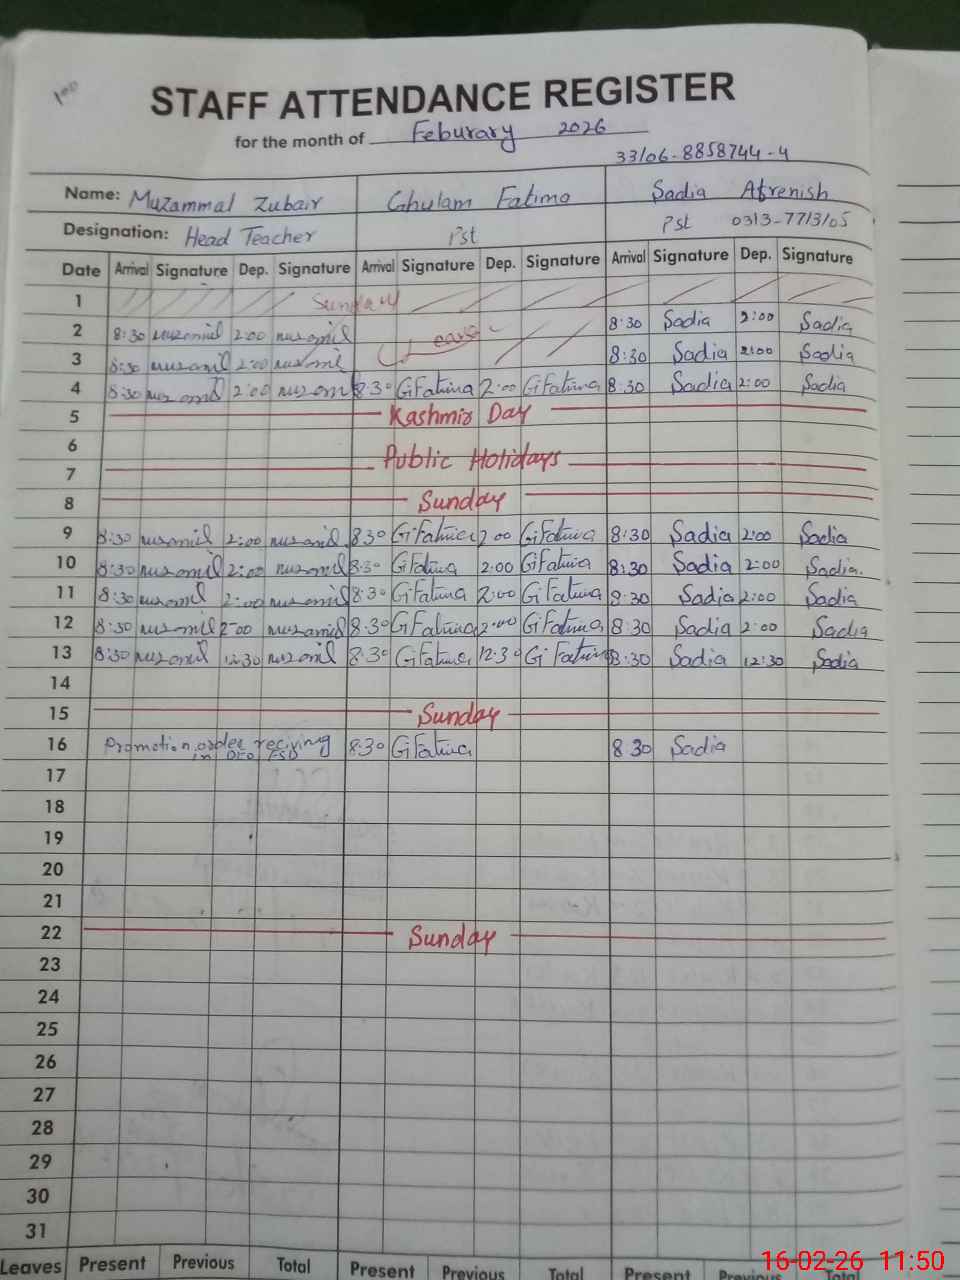 STAFF ATTENDANCE REGISTER
for the month of Feburary 2026
33106-8858744-4
Name: Muzammal Zubair Ghulam Fatima Sadia Afrenish
Designation: Head Teacher Pst Pst 0313-7713105
Date Arrival Signature Dep. Signature Arrival Signature Dep. Signature Arrival Signature Dep. Signature
1 Sunday
2 8:30 muzamil 2:00 muzamil Leave 8:30 Sadia 2:00 Sadia
3 8:30 muzamil 2:00 muzamil 8:30 Sadia 2:00 Sadia
4 8:30 muzamil 2:00 muzamil 8:30 G.Fatima 2:00 G.Fatima 8:30 Sadia 2:00 Sadia
5 Kashmir Day
6
7 Public Holidays
8 Sunday
9 8:30 muzamil 2:00 muzamil 8:30 G.Fatima 2:00 G.Fatima 8:30 Sadia 2:00 Sadia
10 8:30 muzamil 2:00 muzamil 8:30 G.Fatima 2:00 G.Fatima 8:30 Sadia 2:00 Sadia.
11 8:30 muzamil 2:00 muzamil 8:30 G.Fatima 2:00 G.Fatima 8:30 Sadia 2:00 Sadia
12 8:30 muzamil 2:00 muzamil 8:30 G.Fatima 2:00 G.Fatima 8:30 Sadia 2:00 Sadia
13 8:30 muzamil 12:30 muzamil 8:30 G.Fatima 12:30 G.Fatima 8:30 Sadia 12:30 Sadia
14
15 Sunday
16 Promotion order reciving in DEO FSD 8:30 G.Fatima 8:30 Sadia
17
18
19
20
21
22 Sunday
23
24
25
26
27
28
29
30
31
Leaves Present Previous Total Present Previous Total Present Previous Total
16-02-26 11:50